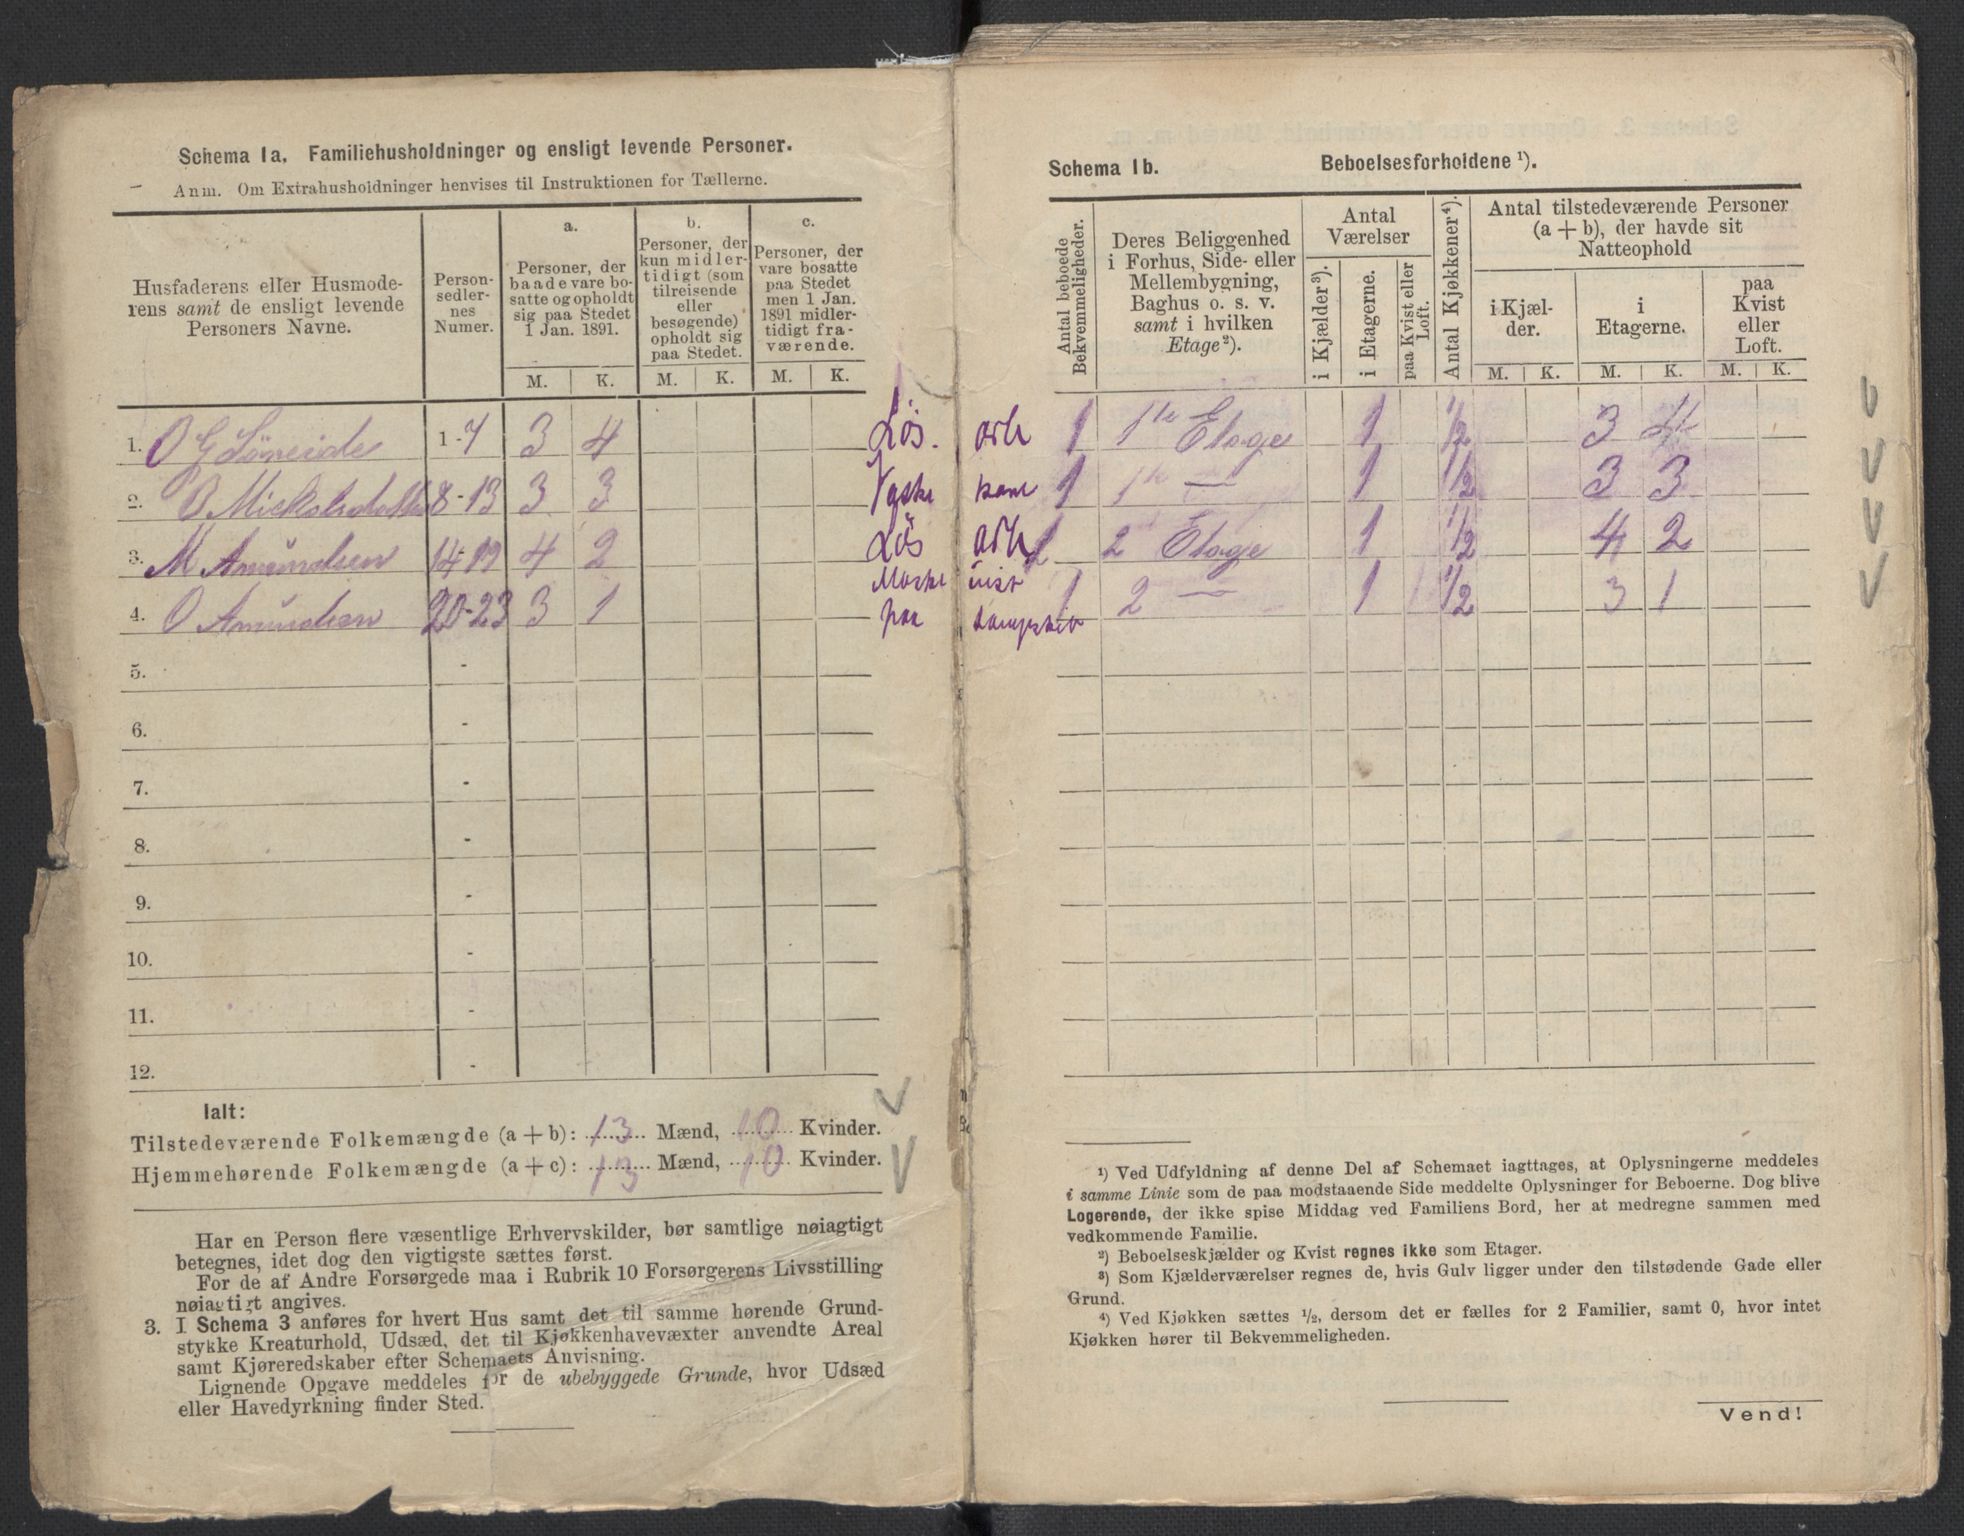 Schema 1a. Familiehusholdninger og ensligt levende Personer.
Anm. Om Extrahusholdninger henvises til Instruktionen for Tællerne.
Husfaderens eller Husmode-
rens samt de ensligt levende
Personers Navne.
Person-
sedler-
nes
Numer.
a.
Personer, der
baade vare bo-
satte og opholdt
sig paa Stedet
1 Jan. 1891.
M. K.
b.
Personer, der
kun midler-
tidigt (som
tilreisende
eller
besøgende)
opholdt sig
paa Stedet.
M. K.
c.
Personer, der
vare bosatte
paa Stedet
men 1 Jan.
1891 midler-
tidigt fra-
værende.
M. K.
1. O G 1-7 3 4 Løs.
2. O 8-13 3 3 Vaske
3. M Amundsen 14-19 4 2 Løs
4. O Amundsen 20-23 3 1 Maski paa
5. -
6. -
7. -
8. -
9. -
10. -
11. -
12. -
Ialt:
Tilstedeværende Folkemængde (a + b): 13 Mænd, 10 Kvinder.
Hjemmehørende Folkemængde (a + c): 13 Mænd, 10 Kvinder.
Har en Person flere væsentlige Erhvervskilder, bør samtlige nøiagtigt
betegnes, idet dog den vigtigste sættes først.
For de af Andre Forsørgede maa i Rubrik 10 Forsørgerens Livsstilling
nøiagtigt angives.
3. I Schema 3 anføres for hvert Hus samt det til samme hørende Grund-
stykke Kreaturhold, Udsæd, det til Kjøkkenhavevæxter anvendte Areal
samt Kjøreredskaber efter Schemaets Anvisning.
Lignende Opgave meddeles for de ubebyggede Grunde, hvor Udsæd
eller Havedyrkning finder Sted.
Schema 1b. Beboelsesforholdene ¹).
Antal beboede
Bekvemmeligheder.
Deres Beliggenhed
i Forhus, Side- eller
Mellembygning,
Baghus o. s. v.
samt i hvilken
Etage²).
Antal
Værelser
i Kjælder³).
i Etagerne.
paa Kvist eller
Loft.
Antal Kjøkkener⁴).
Antal tilstedeværende Personer
(a + b), der havde sit
Natteophold
i Kjæl-
der.
M. K.
i
Etagerne.
M. K.
paa
Kvist
eller
Loft.
M. K.
arb 1 1te Etage 1 1/2 3 4
kone 1 1te — 1 1/2 3 3
arb 1 2 Etage 1 1/2 4 2
inist 1 2 — 1 1/2 3 1
¹) Ved Udfyldning af denne Del af Schemaet iagttages, at Oplysningerne meddeles
i samme Linie som de paa modstaaende Side meddelte Oplysninger for Beboerne. Dog blive
Logerende, der ikke spise Middag ved Familiens Bord, her at medregne sammen med
vedkommende Familie.
²) Beboelseskjælder og Kvist regnes ikke som Etager.
³) Som Kjælderværelser regnes de, hvis Gulv ligger under den tilstødende Gade eller
Grund.
⁴) Ved Kjøkken sættes ¹/₂, dersom det er fælles for 2 Familier, samt 0, hvor intet
Kjøkken hører til Bekvemmeligheden.
Vend!